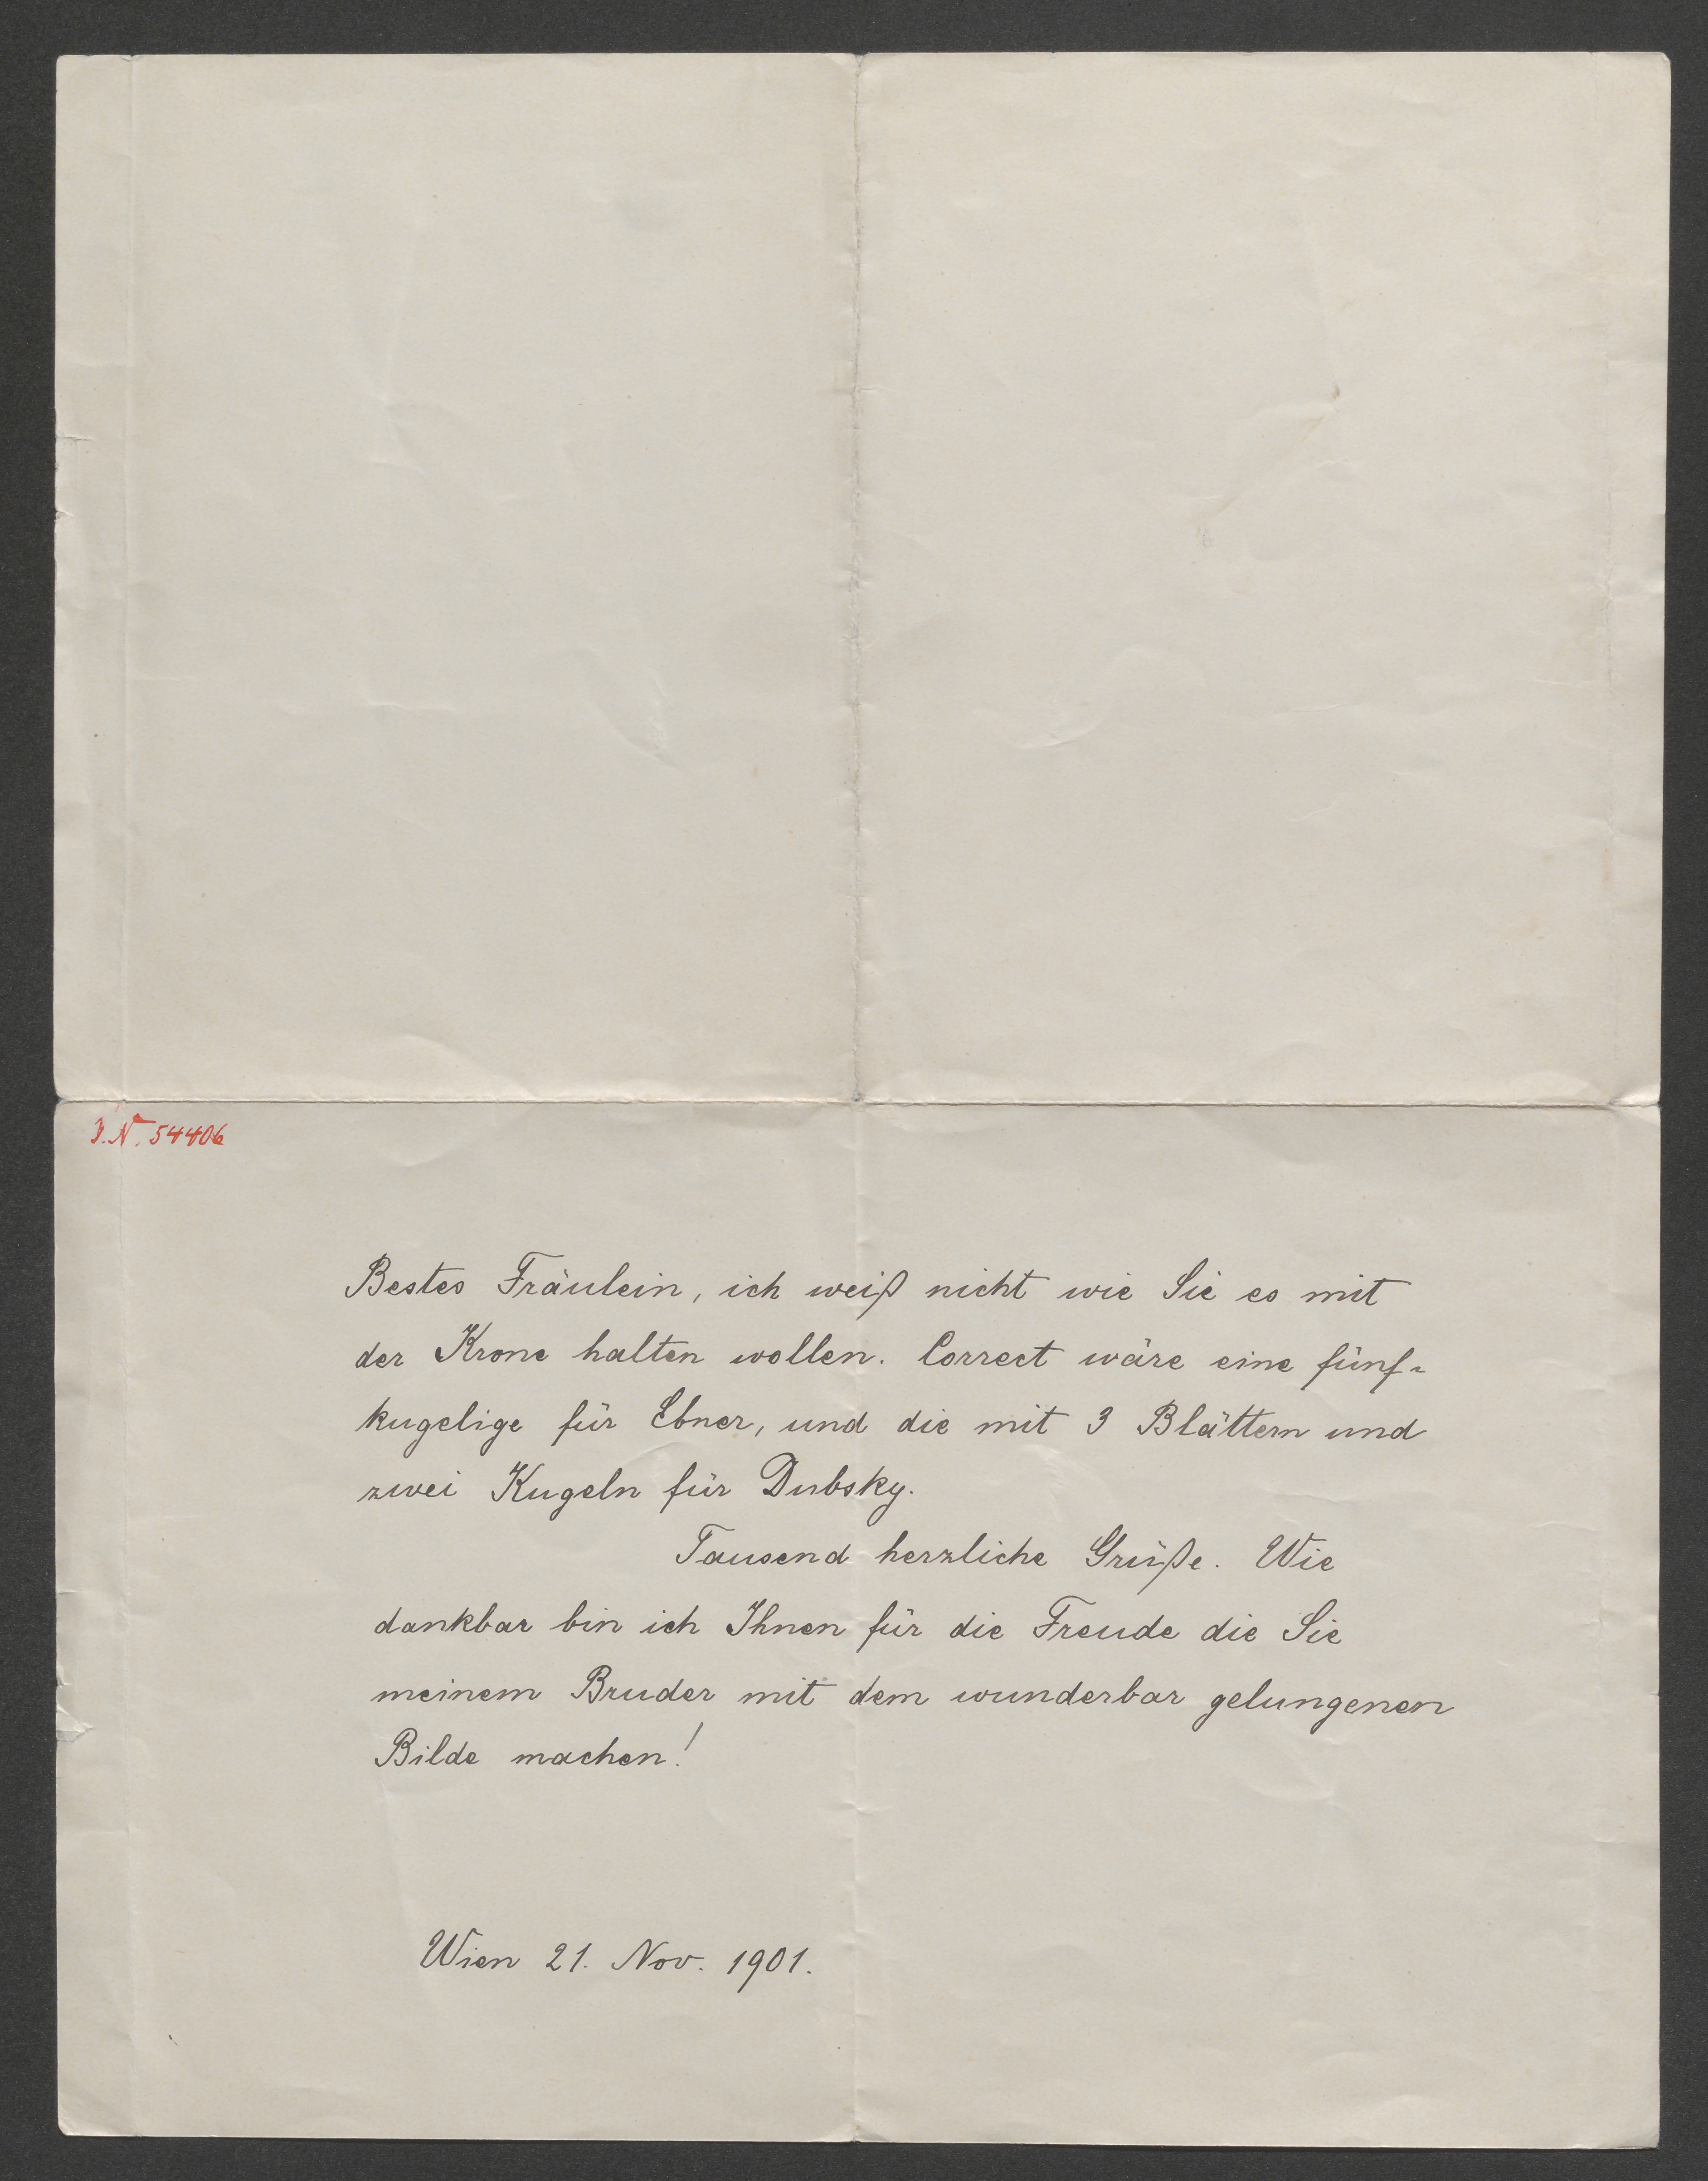 J.N. 54406
Bestes Fräulein, ich weiß nicht wie Sie es mit
der Krone halten wollen. Correct wäre eine fünf-
kugelige für Ebner, und die mit 3 Blättern und
zwei Kugeln für Dubsky.
Tausend herzliche Grüße. Wie
dankbar bin ich Ihnen für die Freude die Sie
meinem Bruder mit dem wunderbar gelungenen
Bilde machen!
Wien 21. Nov. 1901.